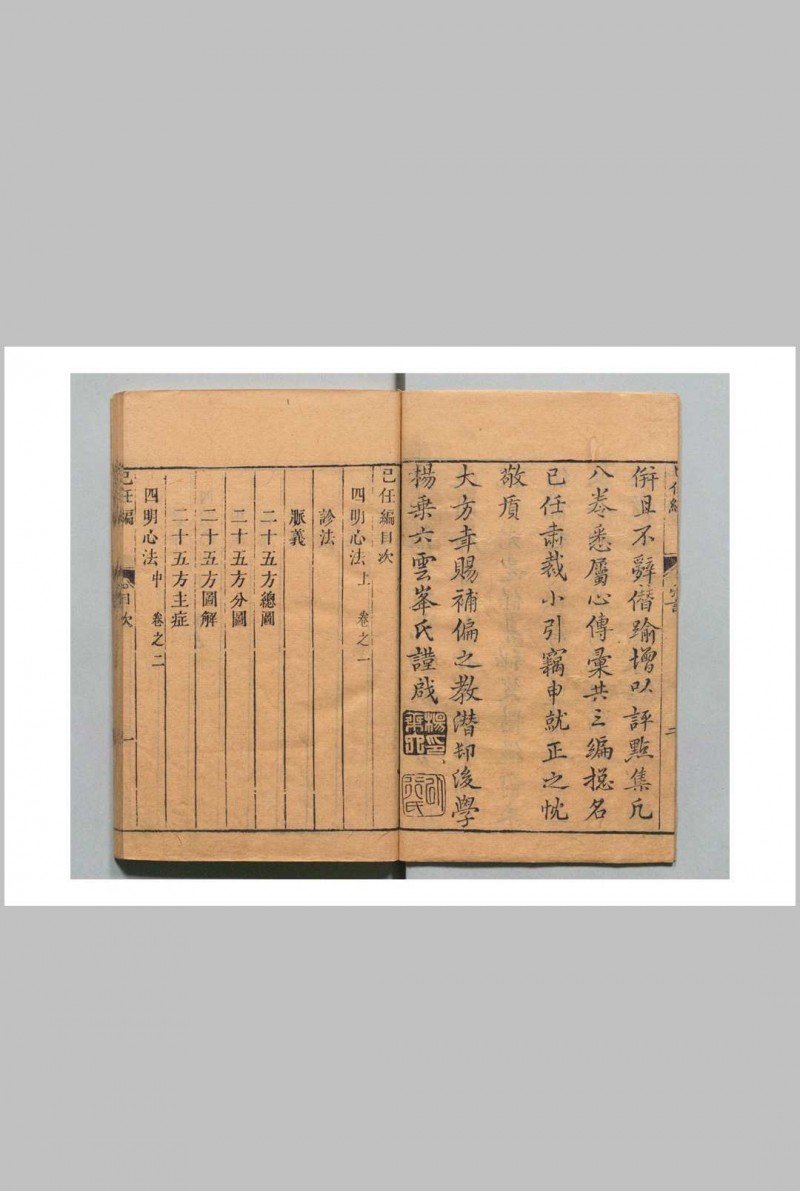 倂且不辭僭踰增以評點集凡
八卷悉屬心傳彙共三編總名
己任肅裁小引竊申就正之忱
敬質
大方幸賜補偏之教潛却後學
楊乗六雲峯氏謹啟
己任編目次
四明心法上 卷之一
診法
脈義
二十五方總圖
二十五方分圖
二十五方圖解
二十五方主症
四明心法中 卷之二
己任編 目次 一